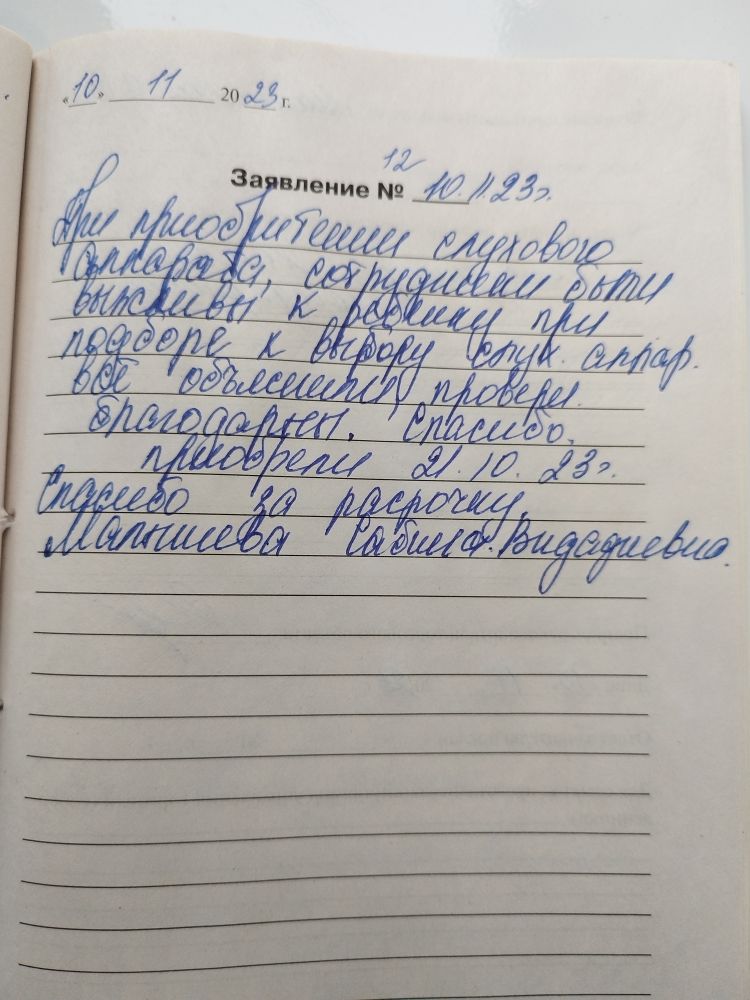 «10» 11 2023 г.
12
Заявление № 10.11.23г.
При приобритении слухового
аппарата, сотрудники были
вежливы к ребёнку при
подборе к выбору слух. аппар.
всё объяснили, провери.
благодарны. Спасибо.
приобрели 21.10.23г.
Спасибо за расрочку.
Малышева Сабина Видадиевна.